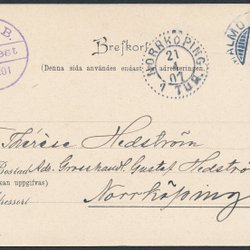 Brefkort
(Denna sida användes endast för adresseringen.)
NORRKÖPING
21
1
07
1 TUR.
MALMÖ
B.
01
Thérèse Hedström
Bostad Adr. Grosshandl. Gustaf Hedström
(kan uppgifvas)
Norrköping
Adressort